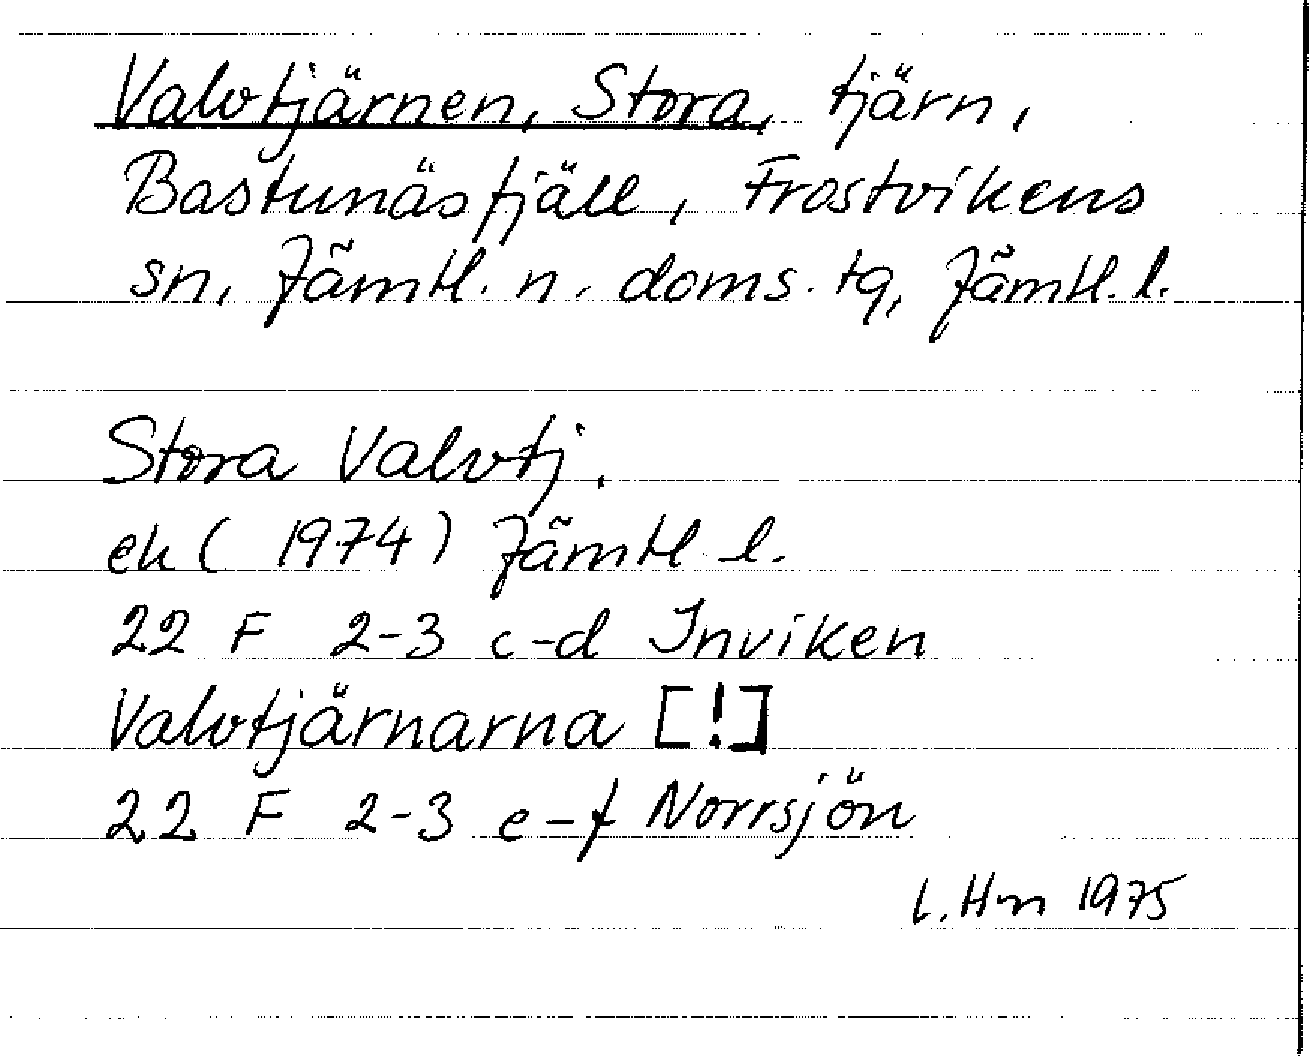 Valvtjärnen, Stora, tjärn,
Bastunäsfjäll, Frostvikens
sn, Jämtl. n. doms. tg, Jämtl. l.
Stora Valvtj.
ek (1974) Jämtl l.
22 F 2-3 c-d Inviken
Valvtjärnarna [!]
22 F 2-3 e-f Norrsjön
L. Hm 1975